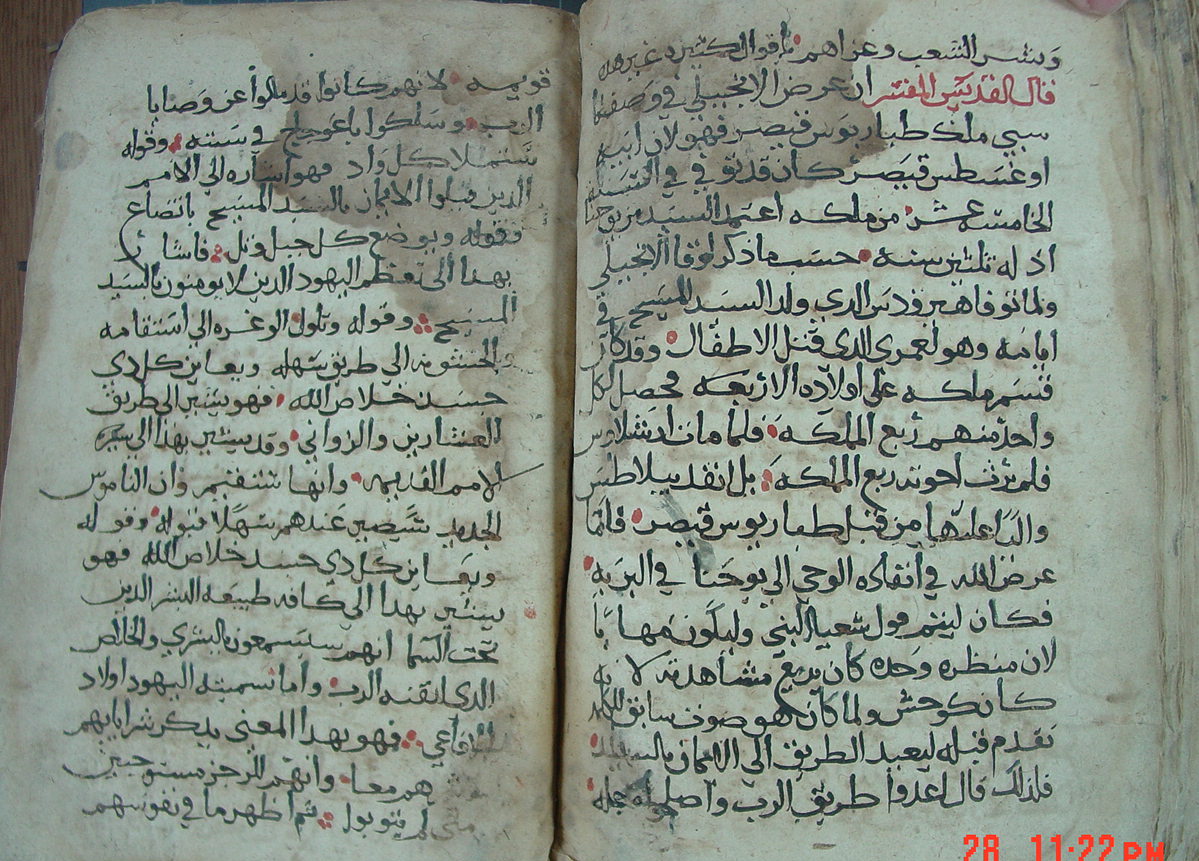 وبشر الشعب وعزاهم باقوال كثيره غيرها
قال القديس المفسر ان عرض الانجيلي في وصفنا
سبي ملك طيباريوس قيصر فهو لان ابيه
اوغسطس قيصر كان قد توفي في السنه
الخامسه عشر من ملكه اعتمد السيد من يوحنا
اذ له تلتين سنه حسب ما ذكر لوقا الانجيلي
ولما توفا هيرودس الدى ولد السيد المسيح في
ايامه وهو لعمري الدى قتل الاطفال وقد كان
قسم ملكه على اولاده الاربعه فحصل لكل
واحد منهم ربع المملكه فلما مات ارشلاوس
فلم يرث اخوته ربع المملكه بل انفد بيلاطس
واليا عليها من قبل طيباريوس قيصر فاما
عرض الله في انفاده الوحي الى يوحنا في البريه
فكان ليتم قول شعيا النبي وليكون مهابا
لان منظره وحده كان يريع مشاهديه لانه
كان كوحش ولما كان هو صوت سابق للكلمه
تقدم قبله ليعبد الطريق الى الايمان بالسيد
فلذلك قال اعدوا طريق الرب واصلحوا سبله
قويمه لانهم كانوا قد مالوا عن وصايا
الرب وسلكوا باعوجاج في سننه وقوله
ستمتلا كل واد فهو اشاره الى الامم
الدين قبلوا الايمان بالسيد المسيح باتضاع
وقوله ويوضع كل جبل وتل فاشار
بهدا الى تعظم اليهود الدين لا يومنون بالسيد
المسيح وقوله وتاول الوعره الى استقامه
والخشونه الى طريق سهله ويعاين كل دي
جسد خلاص الله فهو يشير الى طريق
العشارين والزواني وقد يشير بهدا الى
الامم القديمه وانها تستقيم وان الناموس
الجديد سيصير عندهم سهلا قبوله وقوله
ويعاين كل دي جسد خلاص الله فهو
يشير بهدا الى كافه طبيعه البشر الدين
تحت السما انهم سيسمعون بالبشرى والخلاص
الدى اتقنه الرب واما تسميته اليهود اولاد
الافاعي فهو بهدا المعني يدكر شر ابايهم
هم معا وانهم للرجز مستوجبين
متى لم يتوبوا ثم اظهر ما في نفوسهم
28 11:22 PM